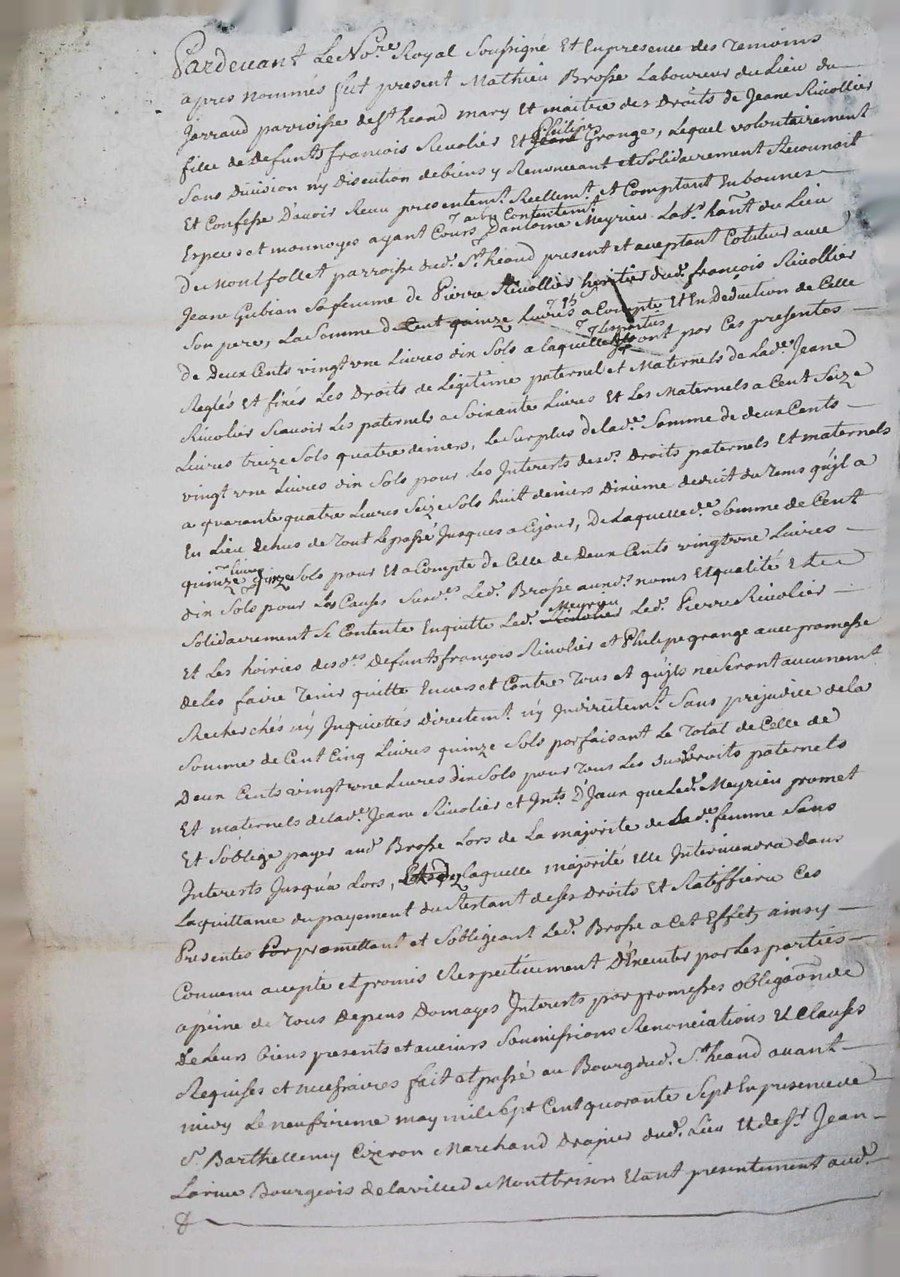 Pardevant Le No.re Royal Soussigné Et Enpresence des Temoins
apres nommés fut present Mathieu Brosse Laboureur du Lieu du
Jarraud parroisse de St. heand mary Et maitre des Droits de Jeane Rivollier
fille de defunts françois Rivolier Et Jeane Philipe Grange, Lequel volontairement
Sans Division n'y Discution debiens y Renonceant et Solidairement Reconnoit
Et Confesse D'avoir Receu presentem.t Reellem.t et Comptant En bonnes
Especes et monnoyes ayant Cours a son Contentem.t D'antoine Meyrieu Lab.r han.t du Lieu
De Monfollet parroisse dud. St. héand present et aceptant Cotuteur avec
Jeane Gubian Sa femme de Pierre Rivollier heritier dud. françois Rivollier
Son pere, La Somme de Cent quinze Livres 15 a Compte Et En Deduction de Celle
de Deux Cents vingt vne Livres dix Sols a laquelle montent par Ces presentes
Reglés Et fixés Les Droits de Légitime paternel et Maternels de Lade. Jeane
Rivolier Scavoir Les paternels a Soixante Livres Et Les Maternels a Cent Seize
Livres treize Sols quatre deniers, le Surplus de lad.e Somme de deux Cents
vingt vne Livres dix Sols pour les Interests desd.s Droits paternels Et maternels
a quarante quatre Livres Seize Sols huit deniers Dixieme deduit du Tems qu'jl a
En Lieu de hus de Tout Le passé Jusques a Cejour, De Laquelle d.e Somme de Cent
quinze Livres quinze Solo pour Et a Compte de Celle de Deux Cents vingt vne Livres
dix Solo pour Les Causes Susd.es Led. Brosse auxd.s noms Et qualité Et
Solidairement Se Contente Enquitte Led. Rivolier Meyrieu Led. Pierre Rivolier
Et Les hoiries desd.s Defunts françois Rivolier et Philipe grange avec promesse
de les faire Tenir quitte Envers et Contre Tous et qu'jls ne Seront aucunem.t
Recherchés n'y Inquiettés Directem.t n'y Indirectem.t Sans prejudice de la
Somme de Cent Cinq Livres quinze Sols parfaisant Le Total de Celle de
Deux Cents vingt vne Livres dix Solo pour Tous Les susd. Droits paternels
Et maternels de lad.e Jeane Rivolier et Int.s D'Jceux que Led. Meyrieu promet
Et Soblige payer aud. Brosse Lors de La majorite de Lad.e femme Sans
Interests Jusqu'a Lors, Laquelle majorité Elle Interviendra dans
La quittance du payement du Restant de ses Droits Et Ratiffiera Ces
Presentes promettant et Sobligeant Led. Brosse a Cet Effet, ainsy
Convenu acepté et promis Respectivement D'Executer par Les parties
a peine de Tous Depens Domages Interests par promesses obligaõn de
de Leurs biens presents et avenirs Soumissions Renonciations Et Clauses
Requises et necessaires fait et passé au Bourg dud. St. heand avant
midy Le neufvieme may mil Sept Cent quarante Sept En presence de
S.r Barthellemy Cizeron Marchand Drapier dud. Lieu Et de S.r Jean
Larue Bourgeois de la ville de Montbrison Etant presentement aud.